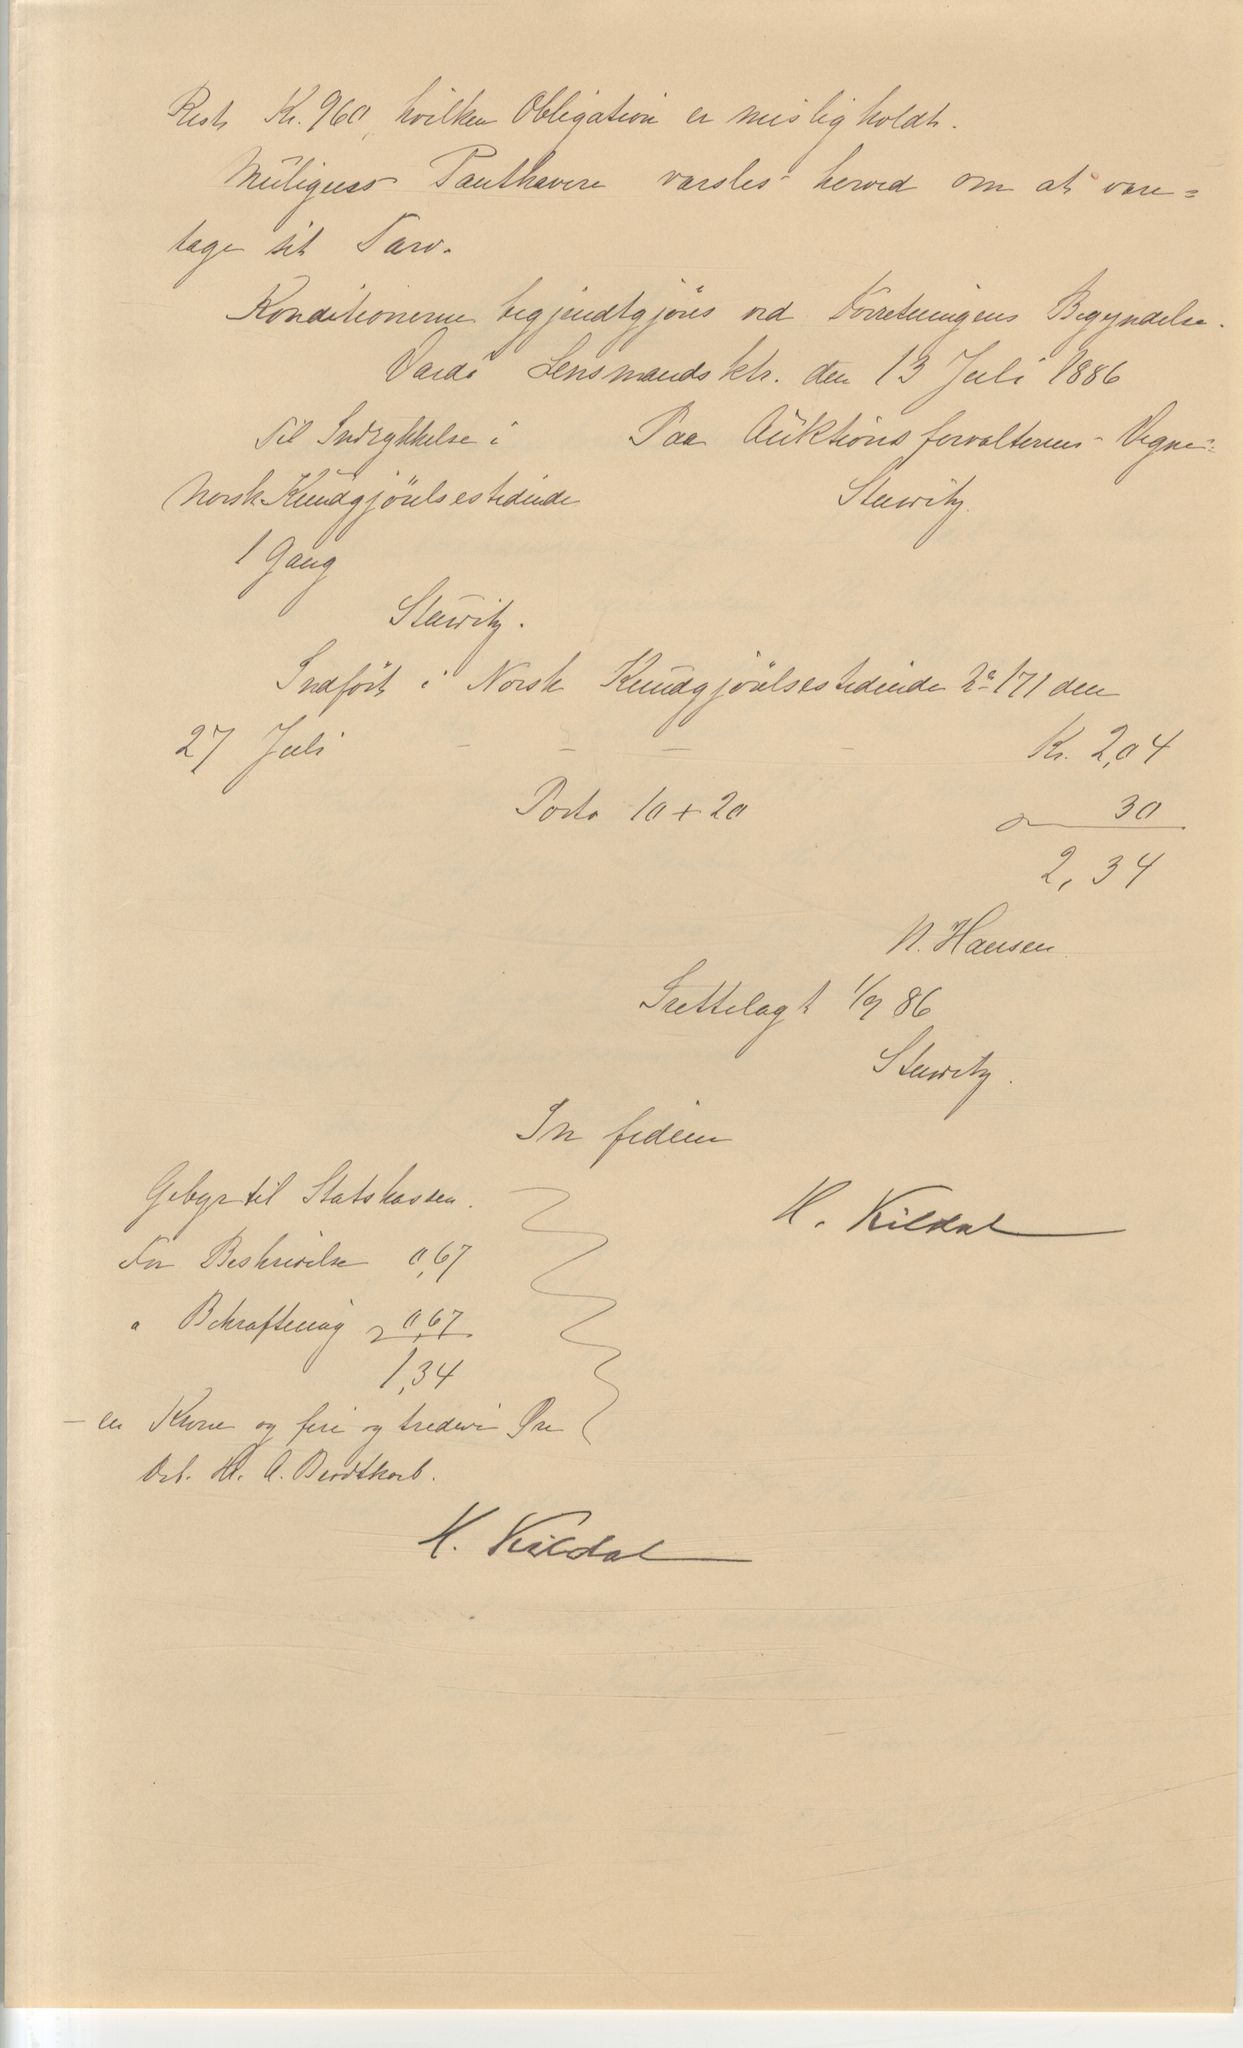 Rest Kr. 960, hvilken Obligation er misligholdt.
Muligens Panthavere varsles herved om at vare=
tage sit Tarv.
Konditionerne begjendtgjöres ved Forretningens Begyndelse.
Vardö Lensmandsktr. den 13 Juli 1886
Til Indrykkelse i Paa Auktionsforvalterens Vegne:
Norsk Kundgjörelsestidende Steuwitz.
1 Gang
Steuwitz.
Indfört i Norsk Kundgjörelsestidende No 171 den
27 Juli - - - - Kr. 2,04
Porto 10 + 20 30
2,34
N. Hansen
Irettelagt 1/9 86
Steuwitz.
In fidem
Gebyr til Statskassen.
H. Kildal
For Beskrivelse 0,67
" Bekræftning 0,67
1,34
- en Krone og fire og tredive Øre
Deb. Hr. A. Brodtkorb.
H. Kildal